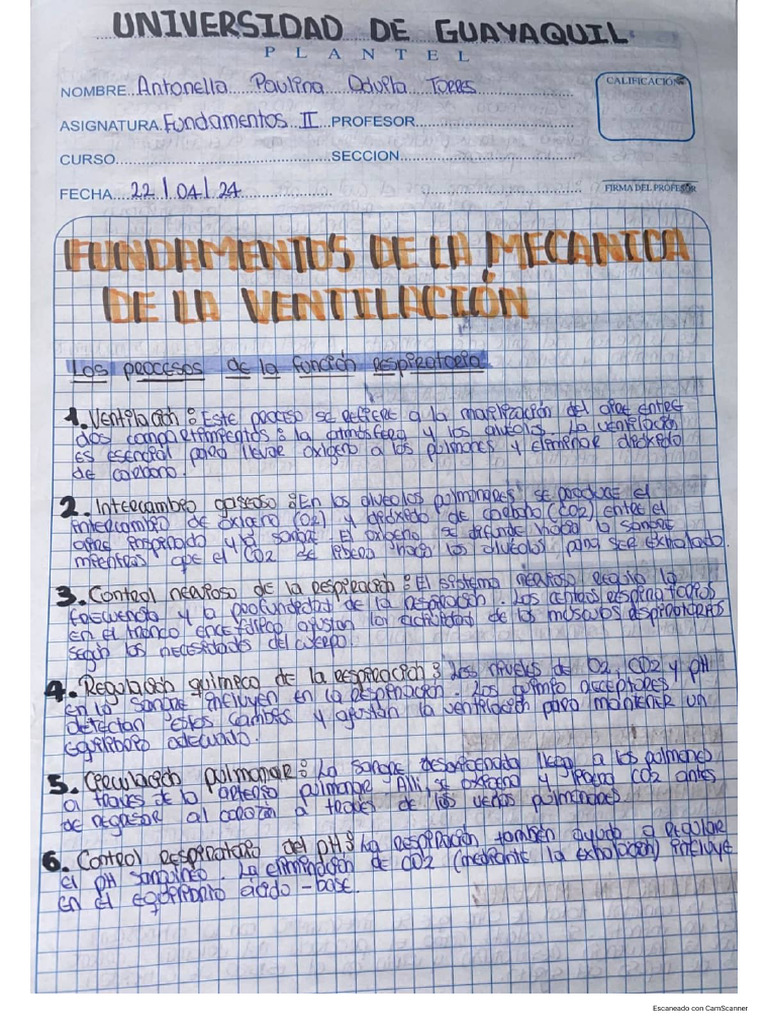 UNIVERSIDAD DE GUAYAQUIL
PLANTEL
NOMBRE Antonella Paulina Torres
CALIFICACIÓN
ASIGNATURA Fundamentos II PROFESOR
CURSO SECCION
FECHA 22/04/24
FIRMA DEL PROFESOR
FUNDAMENTOS DE LA MECANICA
DE LA VENTILACIÓN
Los procesos de la función respiratoria
1. Ventilación: Este proceso se refiere a la movilización del aire entre
dos compartimientos: la atmósfera y los alveolos. La ventilación
es esencial para llevar oxígeno a los pulmones y eliminar dióxido
de carbono.
2. Intercambio gaseoso: En los alveolos pulmonares se produce el
intercambio de oxígeno (O2) y dióxido de carbono (CO2) entre el
aire respirado y la sangre. El oxígeno se difunde hacia la sangre
mientras que el CO2 se libera hacia los alveolos para ser exhalado.
3. Control nervioso de la respiración: El sistema nervioso regula la
frecuencia y la profundidad de la respiración. Los centros respiratorios
en el tronco encefálico ajustan la actividad de los músculos respiratorios
según las necesidades del cuerpo.
4. Regulación química de la respiración: Los niveles de O2, CO2 y pH
en la sangre influyen en la respiración. Los quimio
detectan estos cambios y ajustan la ventilación para mantener un
equilibrio adecuado.
5. Circulación pulmonar: La sangre desoxigenada llega a los pulmones
a traves de la arteria pulmonar Allí, se oxigena y libera CO2 antes
de regresar al corazón a través de las venas pulmonares.
6. Control respiratorio del pH: La respiración también ayuda a regular
el pH sanguíneo. La eliminación de CO2 (mediante la exhalación) influye
en el equilibrio ácido-base.
Escaneado con CamScanner